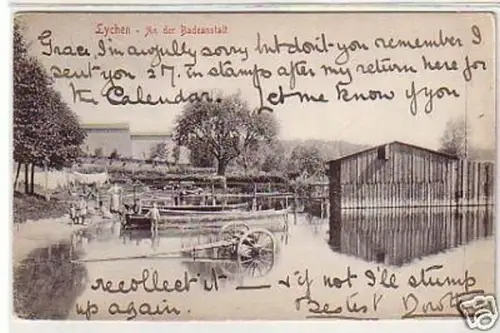 Lychen - An der Badeanstalt
Grace, I'm awfully sorry but don't you remember I
sent you 2/7. in stamps after my return here for
the Calendar. Let me know if you
recollect it — & if not I'll stump
up again. Bestest Dorothy.